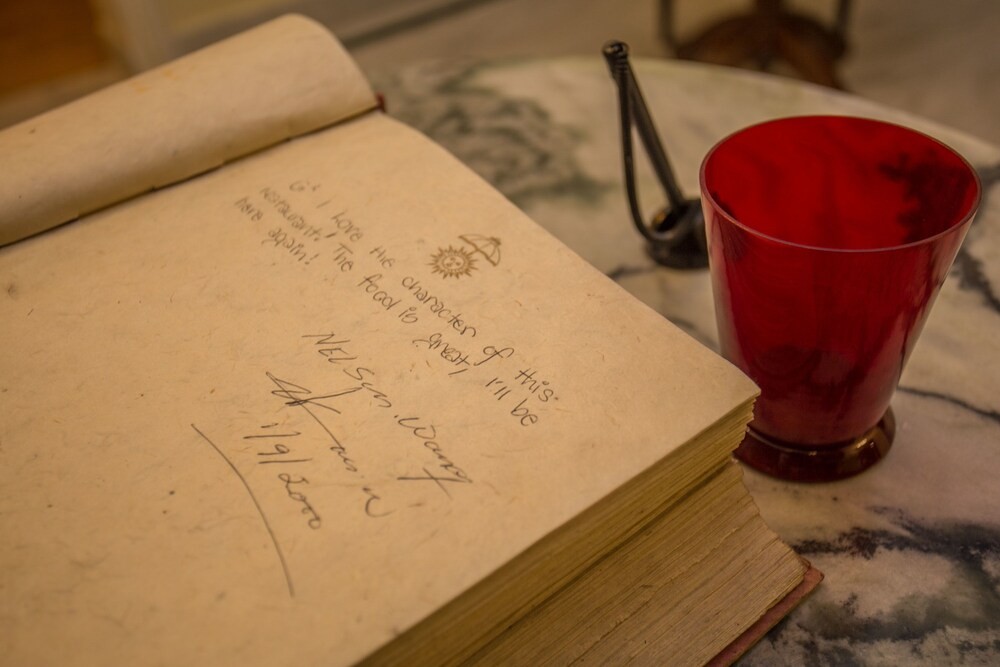 I love the character of this
restaurant! The food is great, I'll be
here again!
NELSON. Wang
1/9/2000